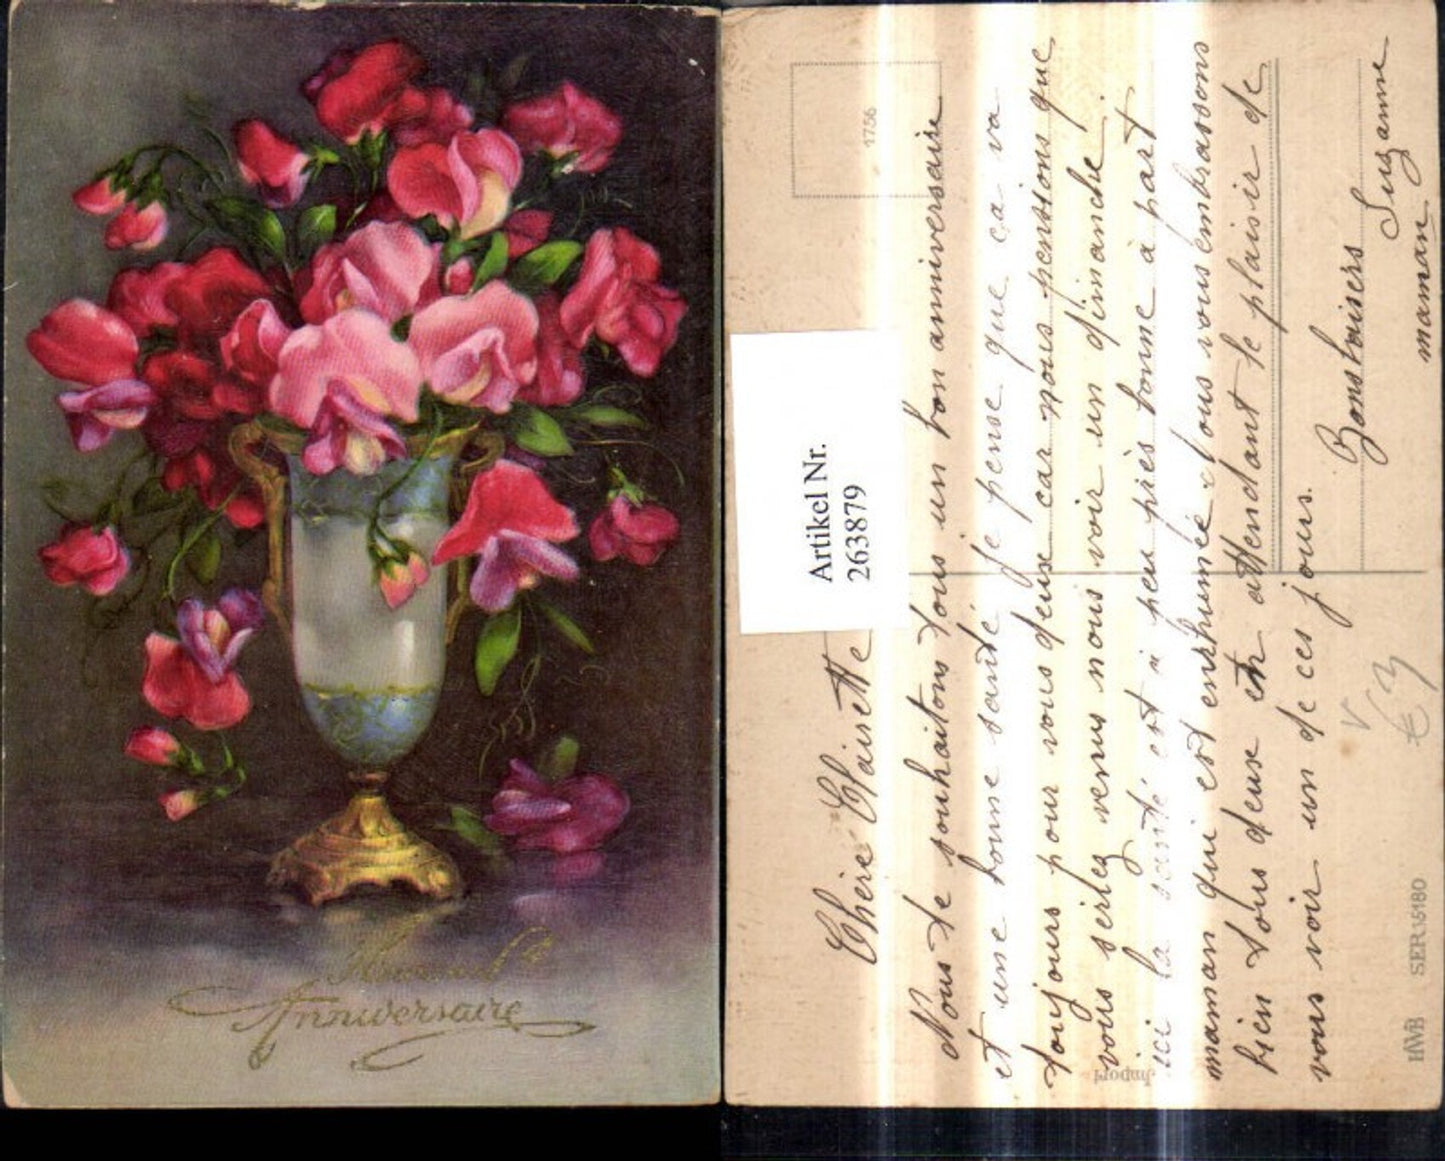 Heureux
Anniversaire
1756
Artikel Nr.
263879
Chère Claisette
Nous te souhaitons tous un bon anniversaire
et une bonne santé je pense que ça va
toujours pour vous deux car nous pensions que
vous seriez venus nous voir un dimanche.
ici la santé est à peu près bonne à part
maman qui est enrhumée tous vous embrassons
bien tous deux en attendant le plaisir de
vous voir un de ces jours.
Bons baisers
Suzanne
maman
V
€ 3
Import
HWB SER 5180